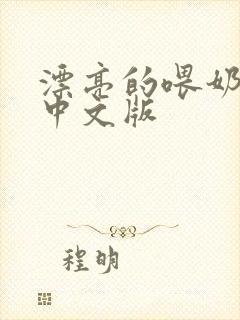 漂亮的喂奶
中文版
程明